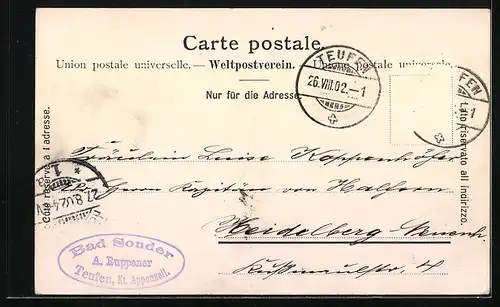 Carte postale.
Union postale universelle. — Weltpostverein. — Unione postale universale.
Nur für die Adresse.
TEUFEN
26.VIII.02.–1
Côté réservé à l'adresse.
Lato riservato all indirizzo.
Fräulein Luise Kappenhöfer
Herrn Kapitän von Halfern
Heidelberg
Bad Sonder
A. Ruppaner
Teufen, Kt. Appenzell.